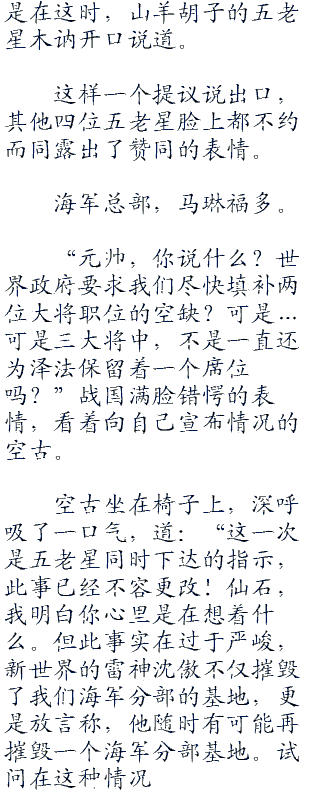 是在这时，山羊胡子的五老
星木讷开口说道。
这样一个提议说出口，
其他四位五老星脸上都不约
而同露出了赞同的表情。
海军总部，马琳福多。
“元帅，你说什么？世
界政府要求我们尽快填补两
位大将职位的空缺？可是...
可是三大将中，不是一直还
为泽法保留着一个席位
吗？”战国满脸错愕的表
情，看着向自己宣布情况的
空古。
空古坐在椅子上，深呼
吸了一口气，道：“这一次
是五老星同时下达的指示，
此事已经不容更改！仙石，
我明白你心里是在想着什
么。但此事实在过于严峻，
新世界的雷神沈傲不仅摧毁
了我们海军分部的基地，更
是放言称，他随时有可能再
摧毁一个海军分部基地。试
问在这种情况